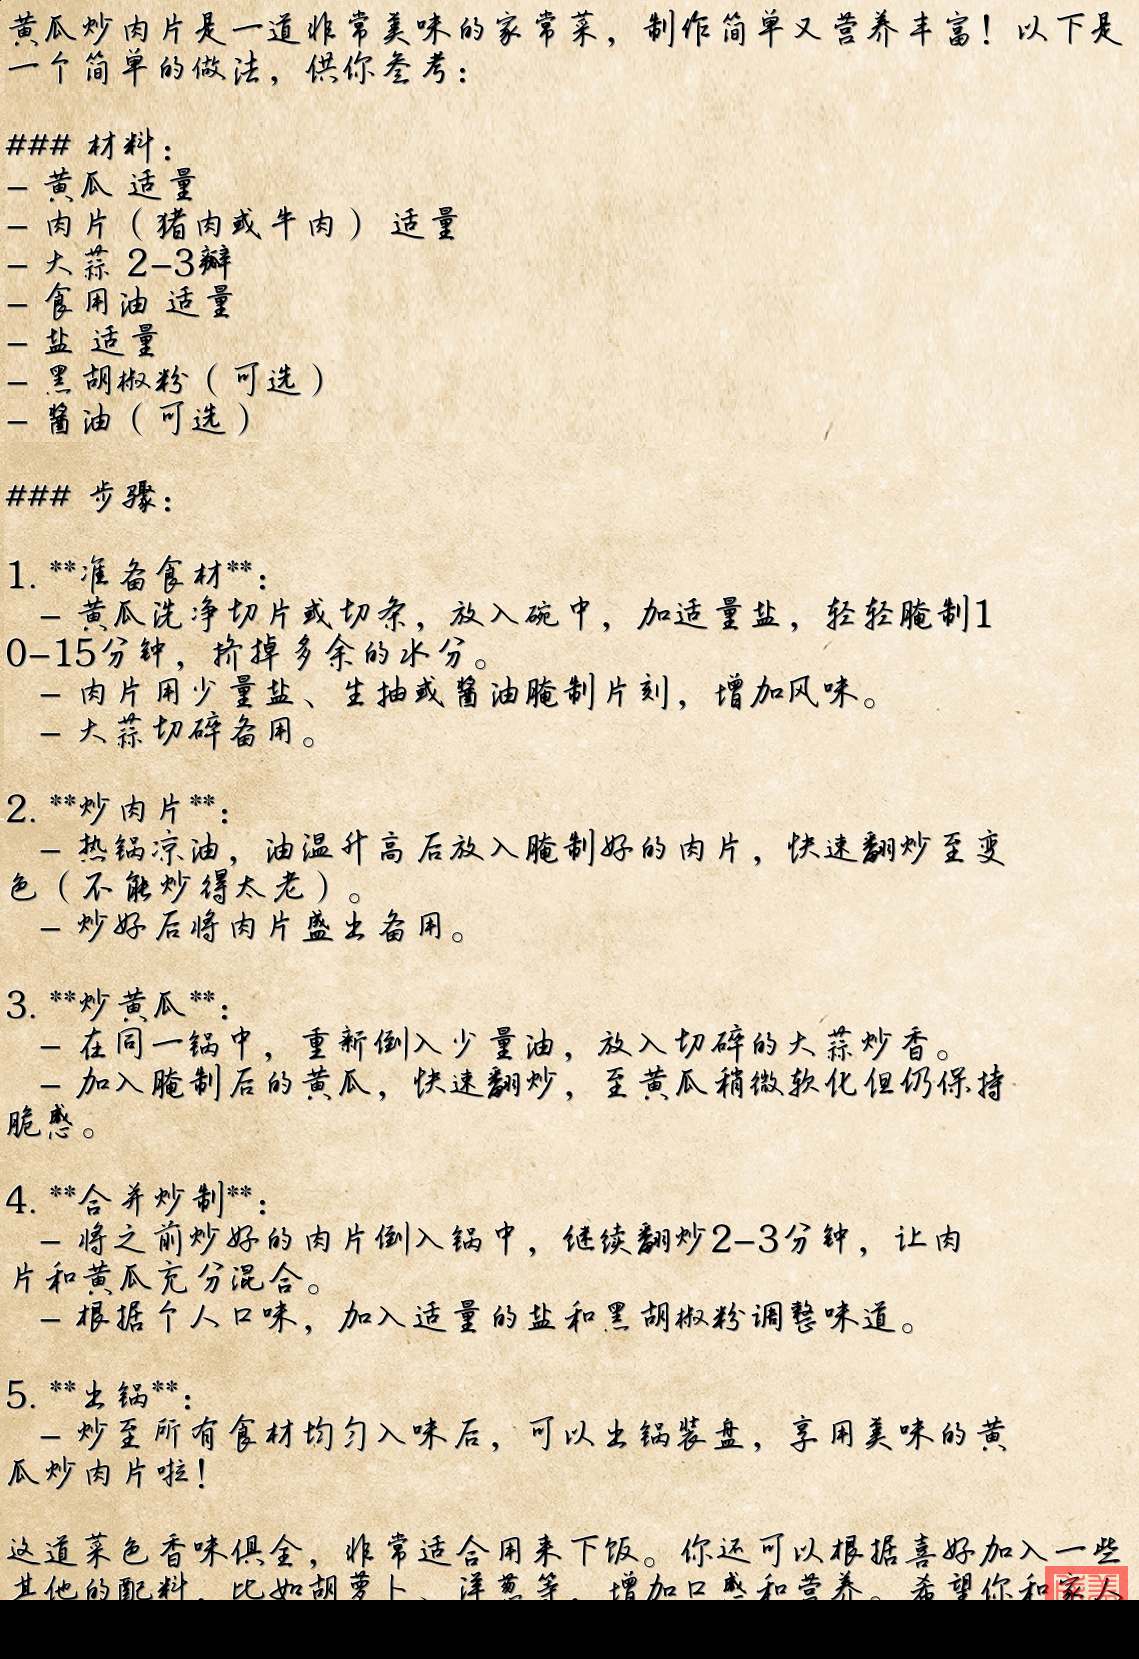 黄瓜炒肉片是一道非常美味的家常菜，制作简单又营养丰富！以下是
一个简单的做法，供你参考：
### 材料：
- 黄瓜 适量
- 肉片（猪肉或牛肉） 适量
- 大蒜 2-3瓣
- 食用油 适量
- 盐 适量
- 黑胡椒粉（可选）
- 酱油（可选）
### 步骤：
1. **准备食材**：
- 黄瓜洗净切片或切条，放入碗中，加适量盐，轻轻腌制1
0-15分钟，挤掉多余的水分。
- 肉片用少量盐、生抽或酱油腌制片刻，增加风味。
- 大蒜切碎备用。
2. **炒肉片**：
- 热锅凉油，油温升高后放入腌制好的肉片，快速翻炒至变
色（不能炒得太老）。
- 炒好后将肉片盛出备用。
3. **炒黄瓜**：
- 在同一锅中，重新倒入少量油，放入切碎的大蒜炒香。
- 加入腌制后的黄瓜，快速翻炒，至黄瓜稍微软化但仍保持
脆感。
4. **合并炒制**：
- 将之前炒好的肉片倒入锅中，继续翻炒2-3分钟，让肉
片和黄瓜充分混合。
- 根据个人口味，加入适量的盐和黑胡椒粉调整味道。
5. **出锅**：
- 炒至所有食材均匀入味后，可以出锅装盘，享用美味的黄
瓜炒肉片啦！
这道菜色香味俱全，非常适合用来下饭。你还可以根据喜好加入一些
其他的配料，比如胡萝卜、洋葱等，增加口感和营养。希望你和家人